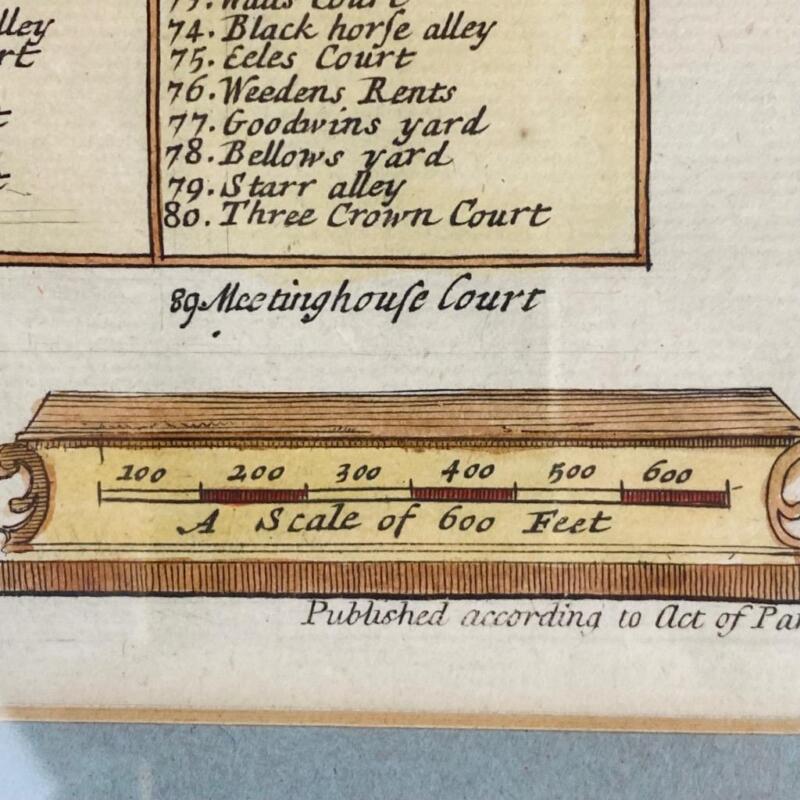 lley
rt
73. Walls Court
74. Black horſe alley
75. Eeles Court
76. Weedens Rents
77. Goodwins yard
78. Bellows yard
79. Starr alley
80. Three Crown Court
89 Meetinghouſe Court
100 200 300 400 500 600
A Scale of 600 Feet
Published according to Act of Par